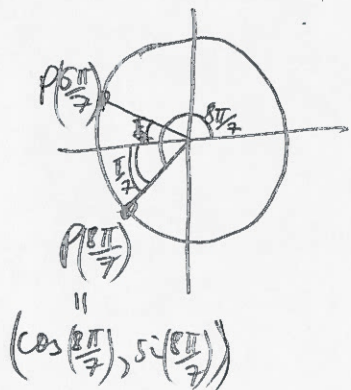 P(6π/7)
8π/7
π/7
π/7
P(8π/7)
=
(cos(8π/7), si(8π/7))